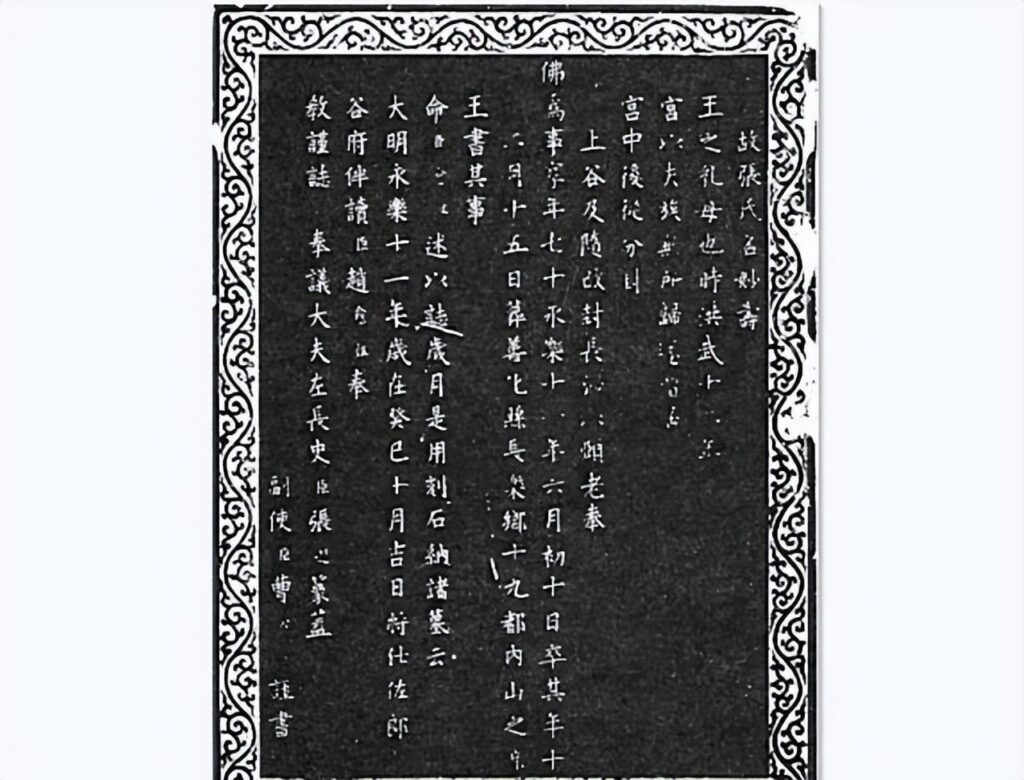 故張氏名妙壽
王之乳母也時洪武十
宮以夫族無所歸
宮中後從分封
上谷及隨改封長 願老奉
佛為事 年七十永樂十 年六月初十日卒其年十
月十五日葬善化縣長樂鄉十九都內山之
王書其事
命臣 述以誌歲月是用刻石納諸墓云
大明永樂十一年歲在癸巳十月吉日將仕佐郎
谷府伴讀臣趙 奉
教謹誌 奉議大夫左長史臣張 篆蓋
副使臣曹 謹書